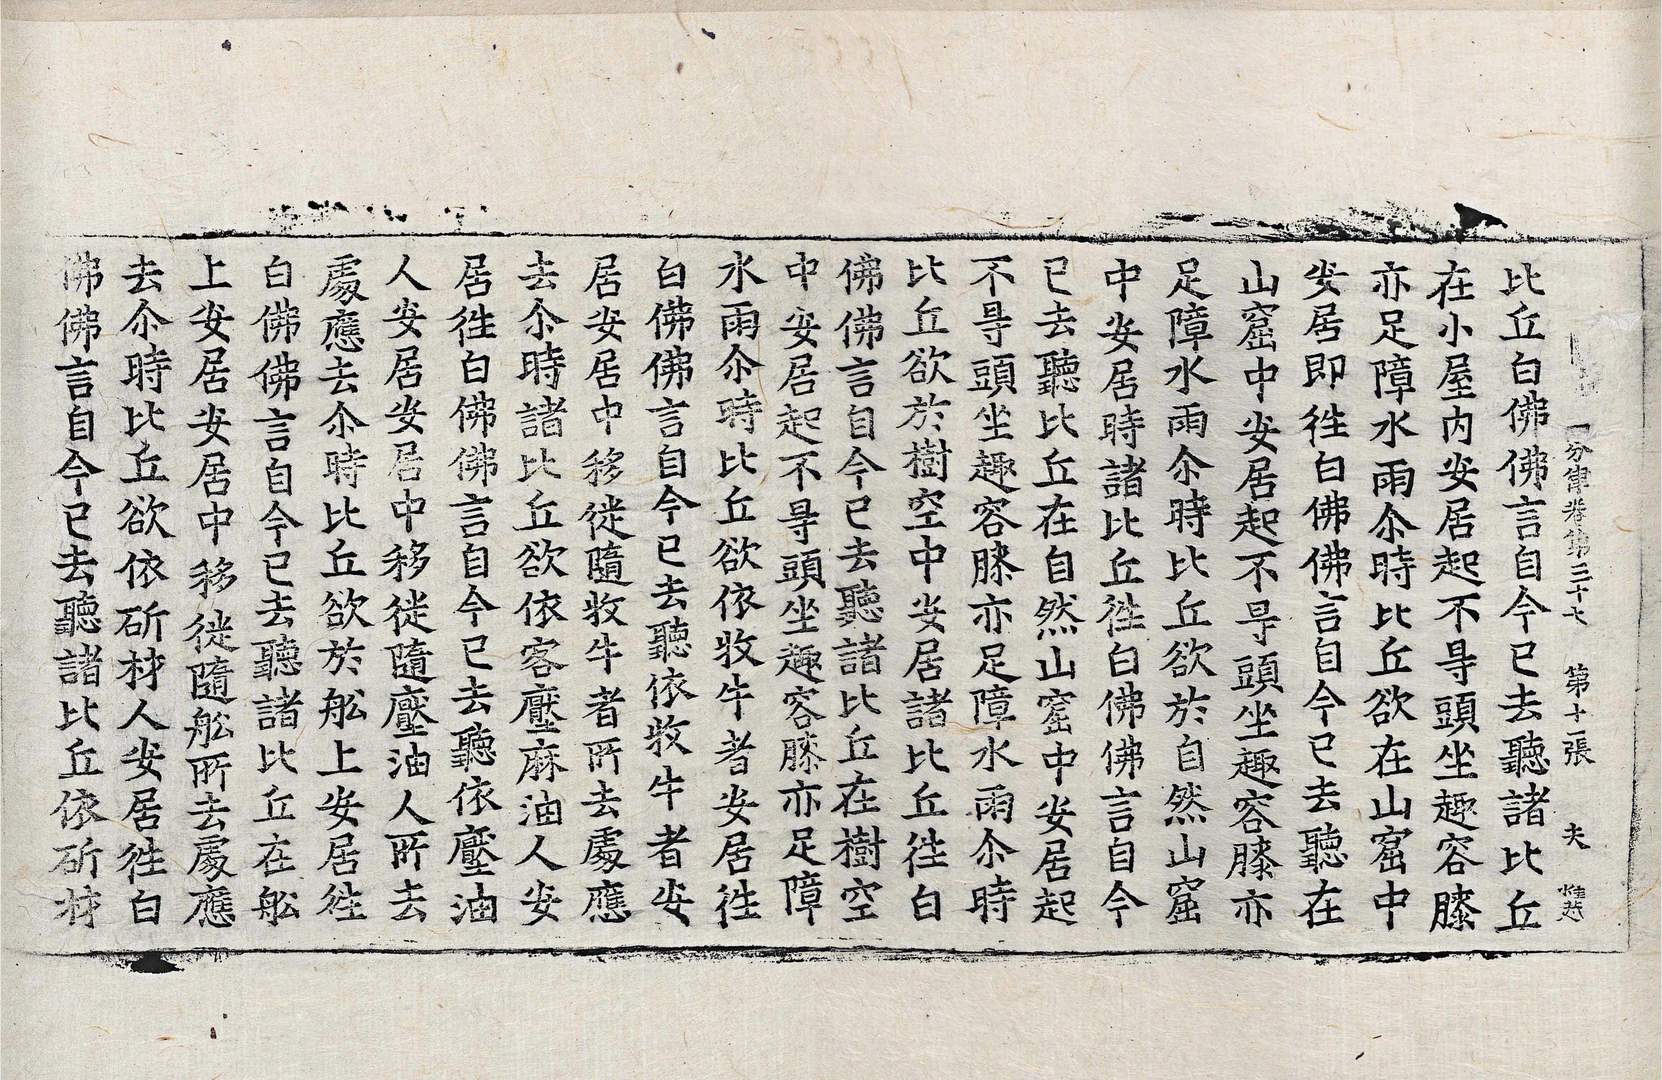 分律卷第三十七 第十一張 夫
比丘白佛佛言自今已去聽諸比丘
在小屋内安居起不㝵頭坐趣容膝
亦足障水雨尒時比丘欲在山窟中
安居即徃白佛佛言自今已去聽在
山窟中安居起不㝵頭坐趣容膝亦
足障水雨尒時比丘欲於自然山窟
中安居時諸比丘徃白佛佛言自今
已去聽比丘在自然山窟中安居起
不㝵頭坐趣容膝亦足障水雨尒時
比丘欲於樹空中安居諸比丘徃白
佛佛言自今已去聽諸比丘在樹空
中安居起不㝵頭坐趣容膝亦足障
水雨尒時比丘欲依牧牛者安居徃
白佛佛言自今已去聽依牧牛者安
居安居中移徙隨牧牛者所去處應
去尒時諸比丘欲依客壓麻油人安
居徃白佛佛言自今已去聽依壓油
人安居安居中移徙隨壓油人所去
處應去尒時比丘欲於舩上安居徃
白佛佛言自今已去聽諸比丘在舩
上安居安居中移徙隨舩所去處應
去尒時比丘欲依斫材人安居徃白
佛佛言自今已去聽諸比丘依斫材